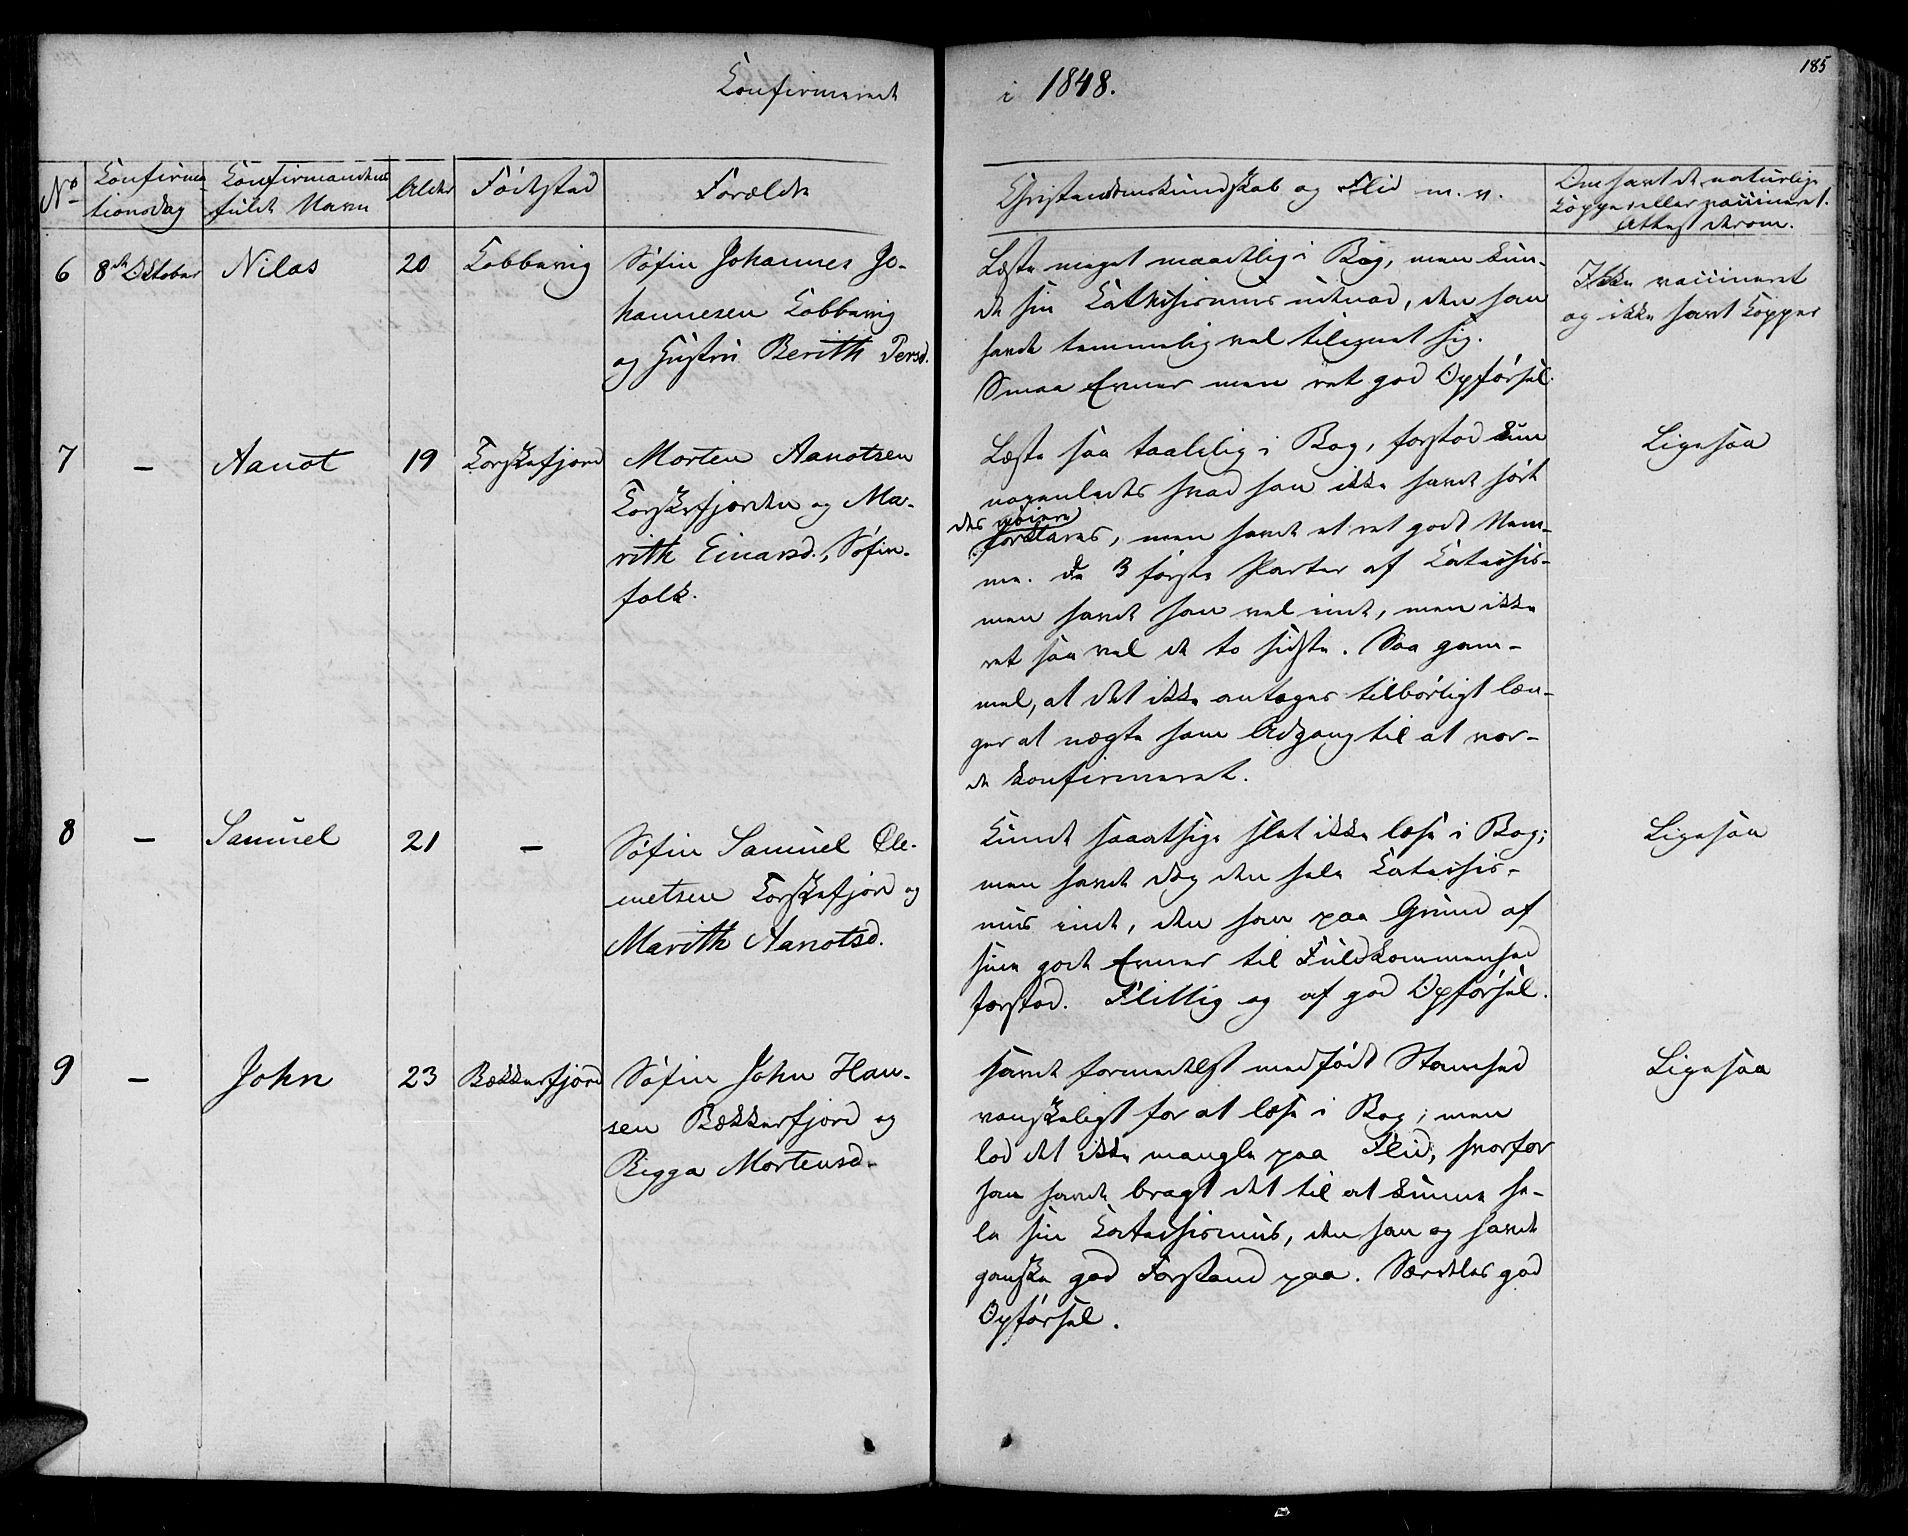 185
Confirmeret i 1848.
No Confirmationsdag Confirmandens fulde Navn Alder Fødested Forældre Christendomskundskab og Flid m. v. Om havt de naturlige Kopper eller vaccineret. Attest derom.
6 8de Oktober Nilas 20 Kobbevig
Søfin Johannes Jo-
hannesen Kobbevig
og Hustru Berith Persd.
Læste meget maadelig i Bog, men kun-
de sin Cathisismus udenad, den han
havde temmelig vel tilegnet sig.
Smaa Evner men ret god Opførsel.
Ikke vaccineret
og ikke havt Kopper
7 – Aanot 19 Torskefjord
Morten Aanotsen
Torskefjorden og Ma-
rith Einarsd., Søfin-
folk.
Læste saa taalelig i Bog, forstod kun
nogenledes hvad han ikke havde hørt
des nøiere
forklares, men havde et ret godt Nem-
me. De 3 første Parter af Catechis-
men havde han vel inde, men ikke
ret saa vel de to sidste. Saa gam-
mel, at det ikke antages tilbørligt læn-
ger at nægte ham Adgang til at vor-
de konfirmeret.
Ligesaa
8 – Samuel 21 –
Søfin Samuel Cle-
metsen Torskefjord og
Marith Aanotsd.
Kunde saaatsige slet ikke læse i Bog;
men havde dog den hele Catechis-
mus inde, den han paa Grund af
sine gode Evner til Fuldkommenhed
forstod. Flittig og af god Opførsel.
Ligesaa
9 – John 23 Bækkerfjord
Søfin John Han-
sen Bækkerfjord og
Bigga Mortensd.
Havde formedelst medfødt Stamhed
vanskeligt for at læse i Bog; men
lod det ikke mangle paa Flid, hvorfor
han havde bragt det til at kunne he-
le sin Catechismus, den han og havde
ganske god Forstand paa. Særdeles god
Opførsel.
Ligesaa